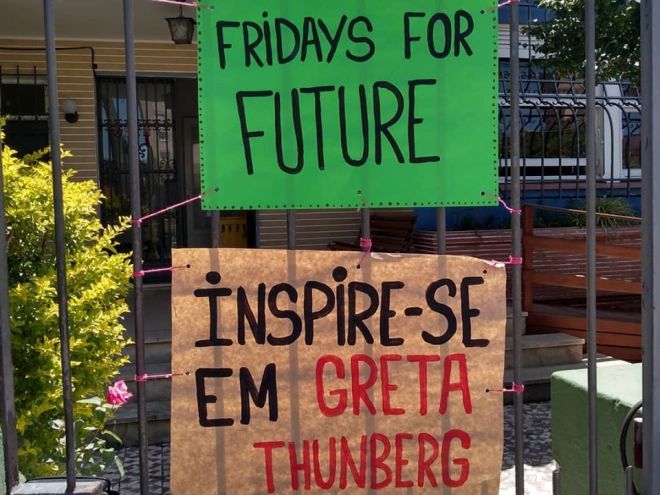 FRiDAYS FOR
FUTURE
iNSPiRE-SE
EM GRETA
THUNBERG